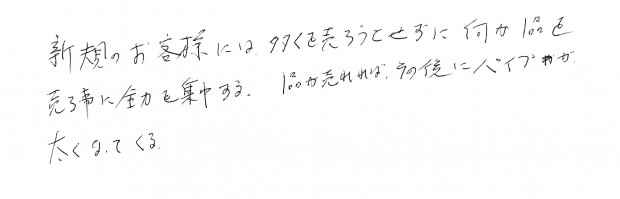 新規のお客様には、多くを売ろうとせずに何か1品を
売る事に全力を集中する。1品が売れれば、その後にパイプが
太くなってくる。